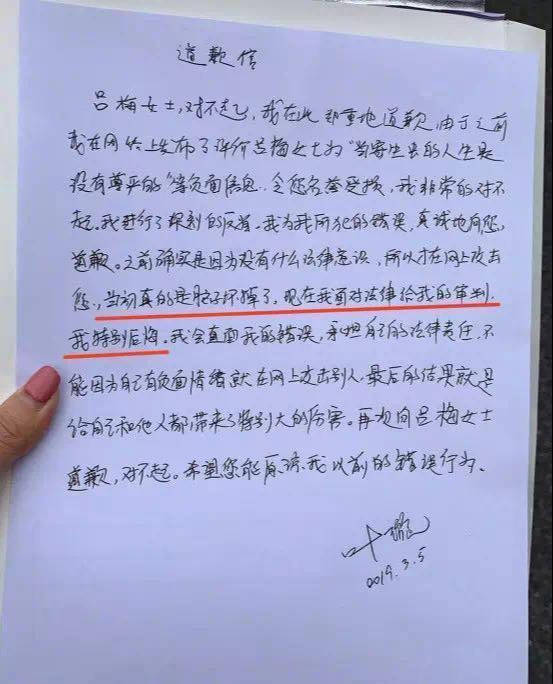 道歉信
吕梅女士,对不起,我在此郑重地道歉,由于之前
我在网络上发布了评价吕梅女士为“当寄生虫的人生是
没有尊严的”等负面信息,令您名誉受损,我非常的对不
起。我进行了深刻的反省,我为我所犯的错误,真诚地向您,
道歉。之前确实是因为没有什么法律意识,所以才在网上攻击
您,当初真的是脑子坏掉了,现在我面对法律给我的审判,
我特别后悔。我会直面我的错误,承担自己的法律责任,不
能因为自己有负面情绪就在网上攻击别人,最后的结果就是
给自己和他人都带来了特别大的伤害。再次向吕梅女士
道歉,对不起。希望您能原谅我以前的错误行为。
叶璇
2019.3.5